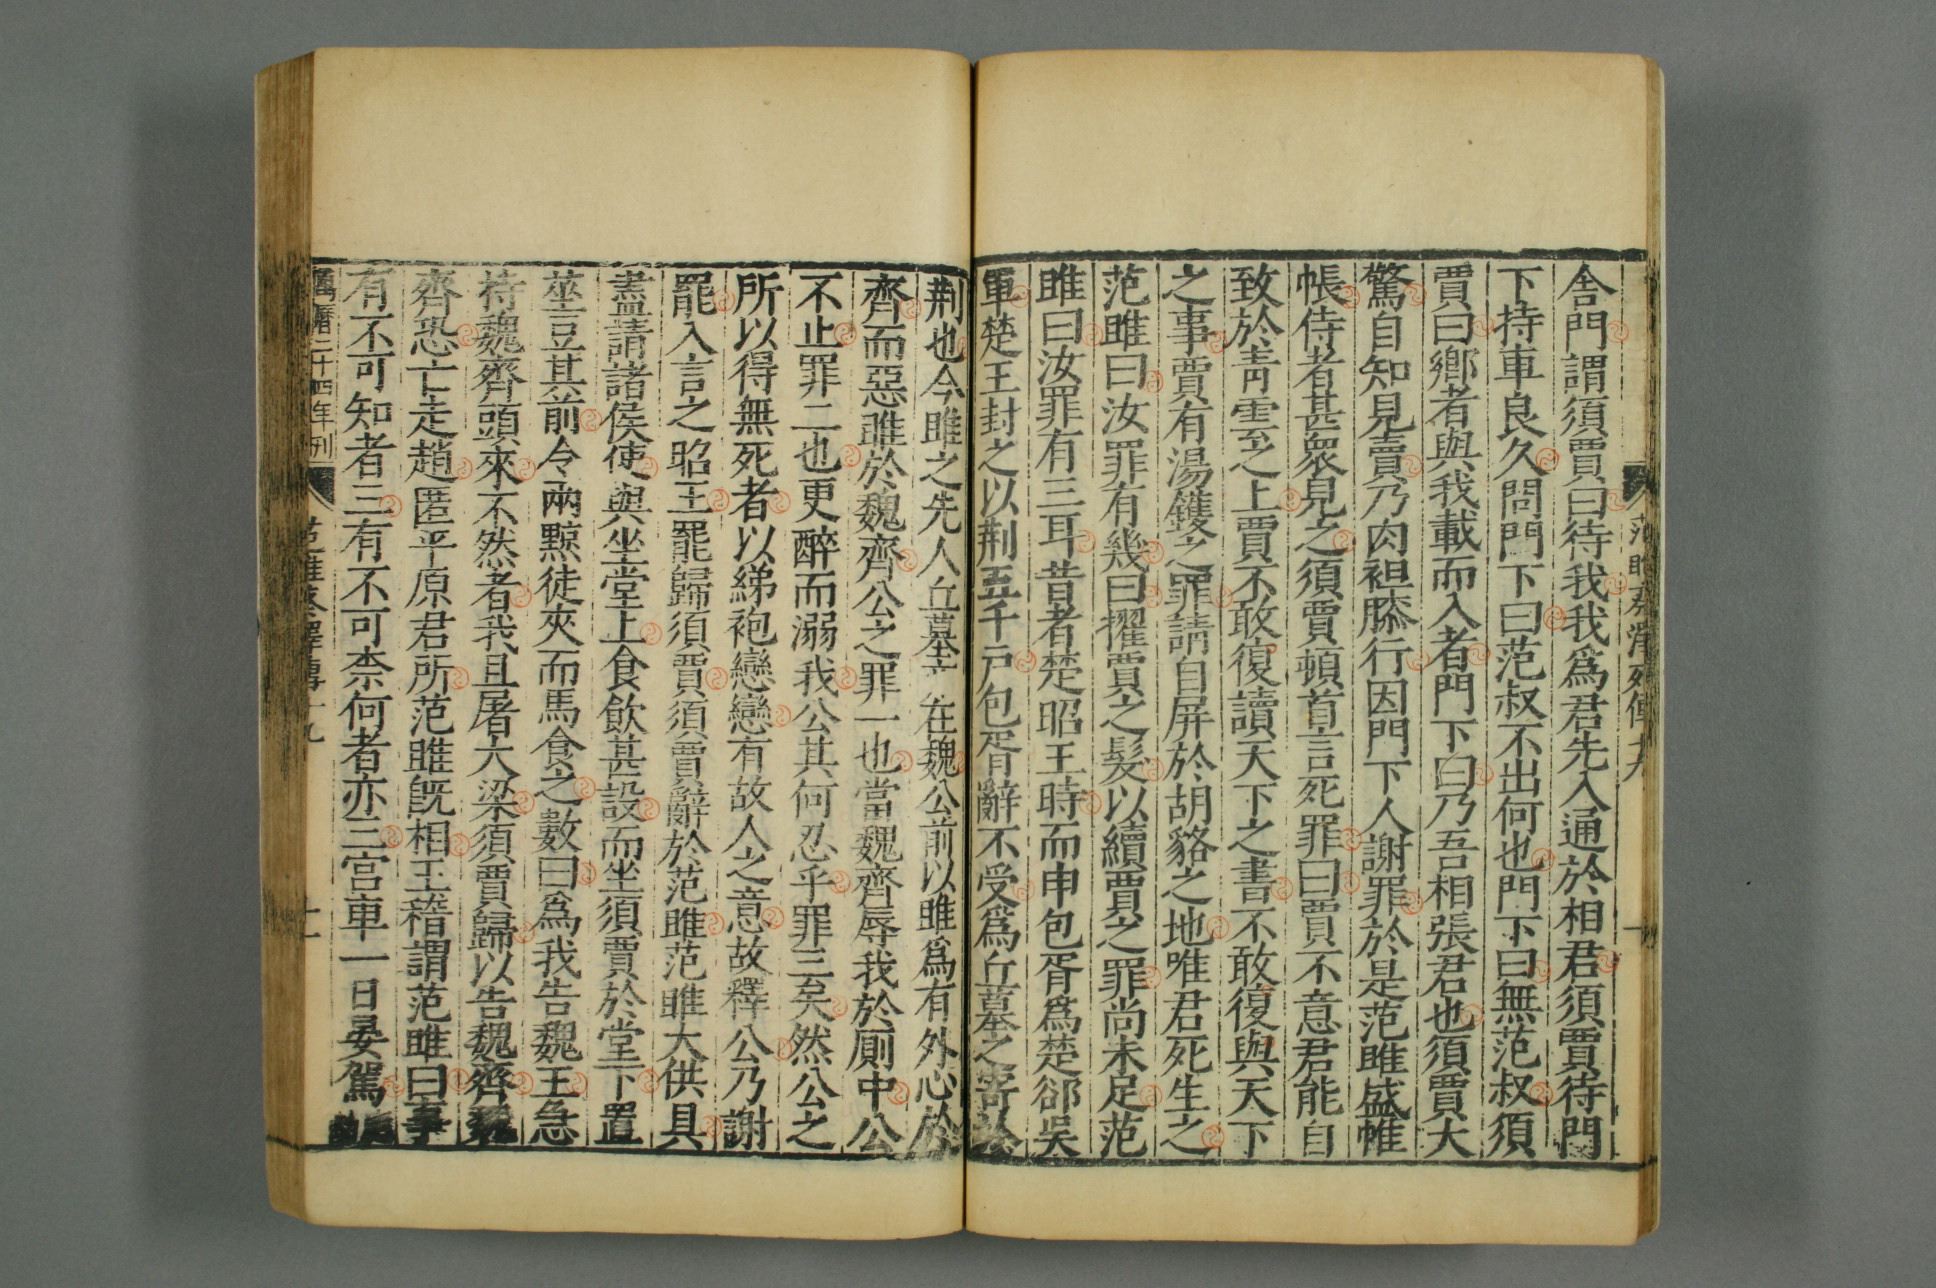 舎門謂須賈曰待我我爲君先入通於相君須賈待門
下持車良久問門下曰范叔不出何也門下曰無范叔須
賈曰鄉者與我載而入者門下曰乃吾相張君也須賈大
驚自知見賣乃肉袒膝行因門下人謝罪於是范雎盛帷
帳侍者甚衆見之須賈頓首言死罪曰賈不意君能自
致於青雲之上賈不敢復讀天下之書不敢復與天下
之事賈有湯鑊之罪請自屏於胡貉之地唯君死生之
范雎曰汝罪有幾曰擢賈之髮以續賈之罪尚未足范
雎曰汝罪有三耳昔者楚昭王時而申包胥爲楚郤吳
軍楚王封之以荆五千戸包胥辭不受爲丘墓之寄於
荆也今雎之先人丘墓亦在魏公前以雎爲有外心於
齊而惡雎於魏齊公之罪一也當魏齊辱我於厠中公
不止罪二也更醉而溺我公其何忍乎罪三矣然公之
所以得無死者以綈袍戀戀有故人之意故釋公乃謝
罷入言之昭王罷歸須賈須賈辭於范雎范雎大供具
盡請諸侯使與坐堂上食飲甚設而坐須賈於堂下置
莝豆其前令兩黥徒夾而馬食之數曰爲我告魏王急
持魏齊頭來不然者我且屠大梁須賈歸以告魏齊魏
齊恐亡走趙匿平原君所范雎旣相王稽謂范雎曰事
有不可知者三有不可柰何者亦三宮車一日晏駕
萬曆二十四年刊
范雎蔡澤傳十九
十一